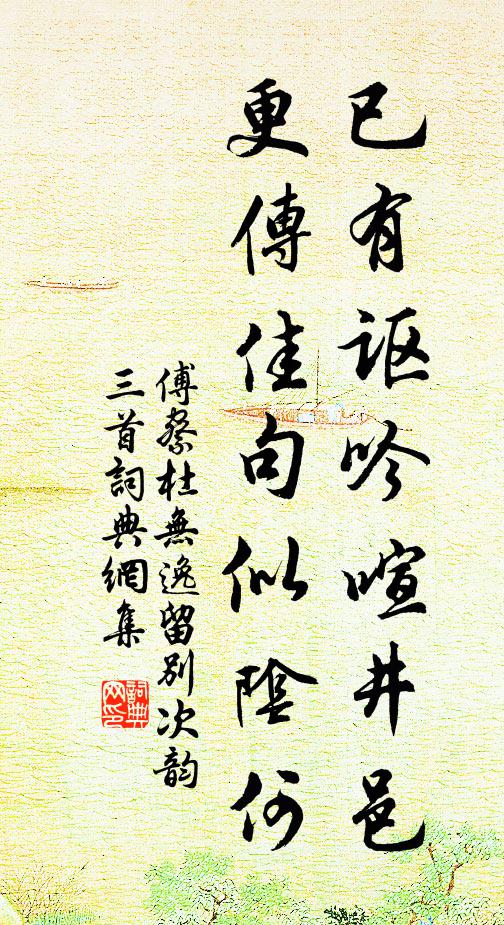 已有謳吟喧井邑
更傳佳句似陰何
傅察杜無逸留別次韵
三首詞典網集
詞典
网印